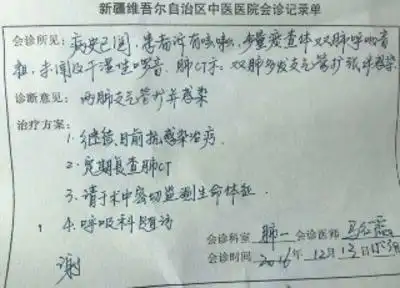 新疆维吾尔自治区中医医院会诊记录单
会诊所见：病史已阅，患者诉有咳嗽，少量痰查体双肺呼吸音
粗，未闻及干湿性啰音．肺CT示：双肺多发支气管扩张并感染
诊断意见：两肺支气管扩并感染
治疗方案：
1. 继续目前抗感染治疗．
2. 定期复查肺CT
3. 请于术中密切监测生命体征．
4. 呼吸科随访
谢
会诊科室 肺一 会诊医师
会诊时间 2016年12月13日